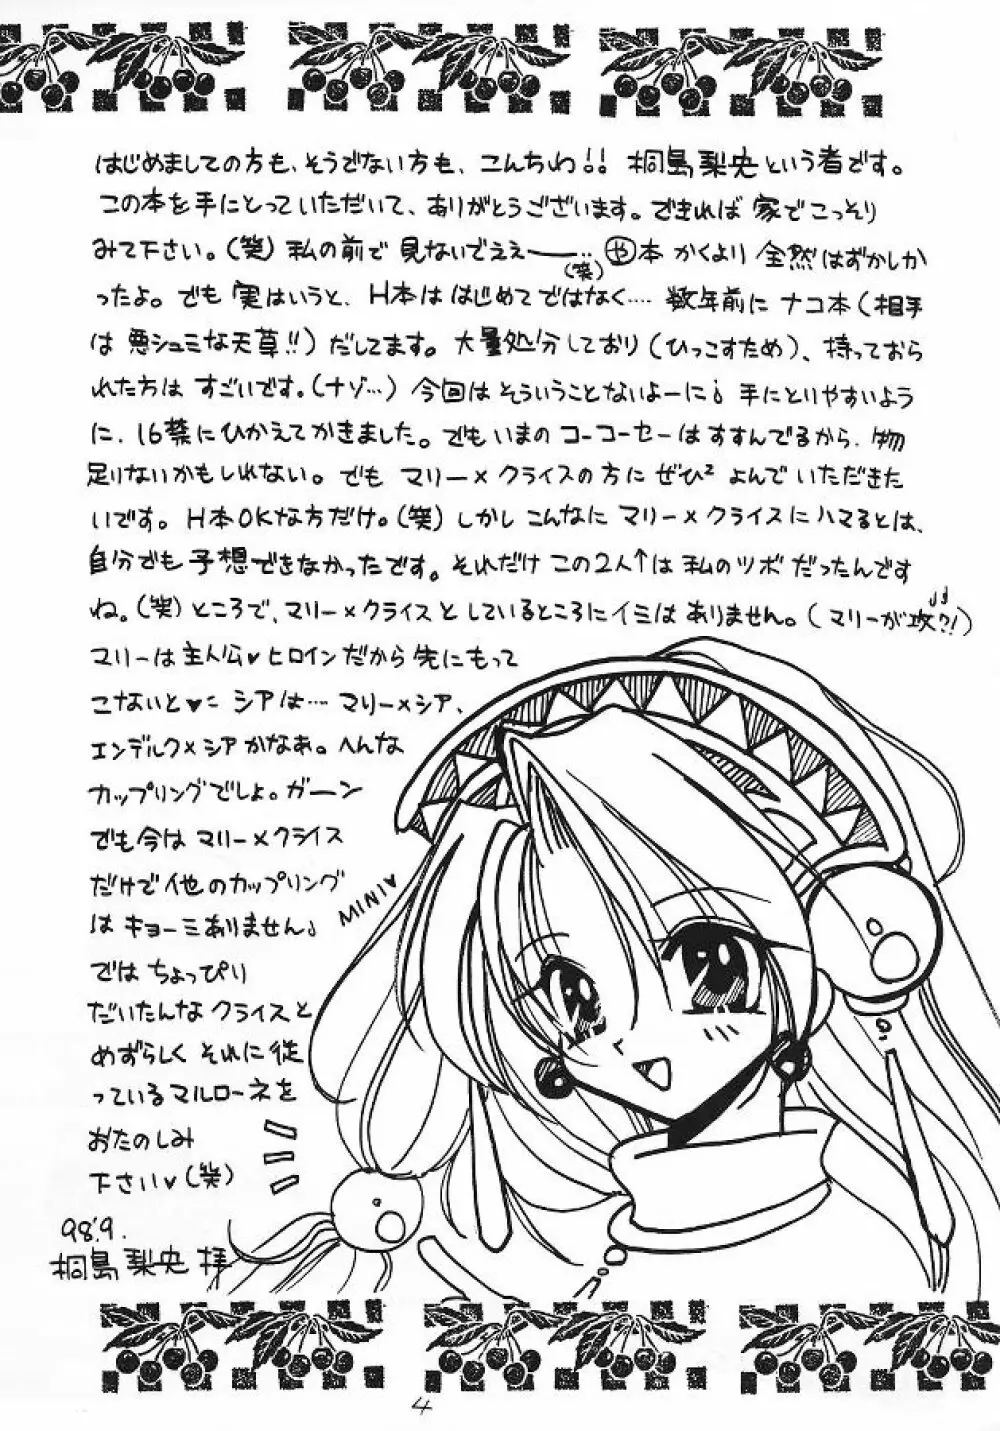 はじめましての方も、そうでない方も、こんちわ!! 桐島梨央という者です。
この本を手にとっていただいて、ありがとうございます。できれば 家でこっそり
みて下さい。(笑) 私の前で 見ないでええー…(笑) や本 かくより 全然はずかしか
ったよ。でも 実はいうと、H本は はじめてではなく…. 数年前に ナコ本(相手
は 悪シュミな天草!!) だしてます。大量処分しており(ひっこすため)、持っておら
れた方は すごいです。(ナゾ…) 今回は そういうことないよーに♩ 手にとりやすいよう
に、16禁にひかえてかきました。でも いまの コーコーセーは すすんでるから、物
足りないかもしれない。でも マリー×クライスの方に ぜひ² よんで いただきた
いです。H本OKな方だけ。(笑) しかし こんなに マリー×クライスに ハマるとは、
自分でも 予想できなかったです。それだけ この2人↑は 私のツボ だったんです
ね。(笑) ところで、マリー×クライスとしているところにイミは ありません。(マリーが攻?!)
マリーは 主人公♥ヒロインだから 先にもって
こないと♥ シアは… マリー×シア、
エンデルク×シア かなあ。へんな
カップリングでしょ。ガーン
でも今は マリー×クライス
だけで 他のカップリング
は キョーミありません♩
では ちょっぴり
だいたんな クライスと
めずらしく それに従
っている マルローネを
おたのしみ
下さい♥(笑)
98.'9.
桐島 梨央 拝
MINI♥
4